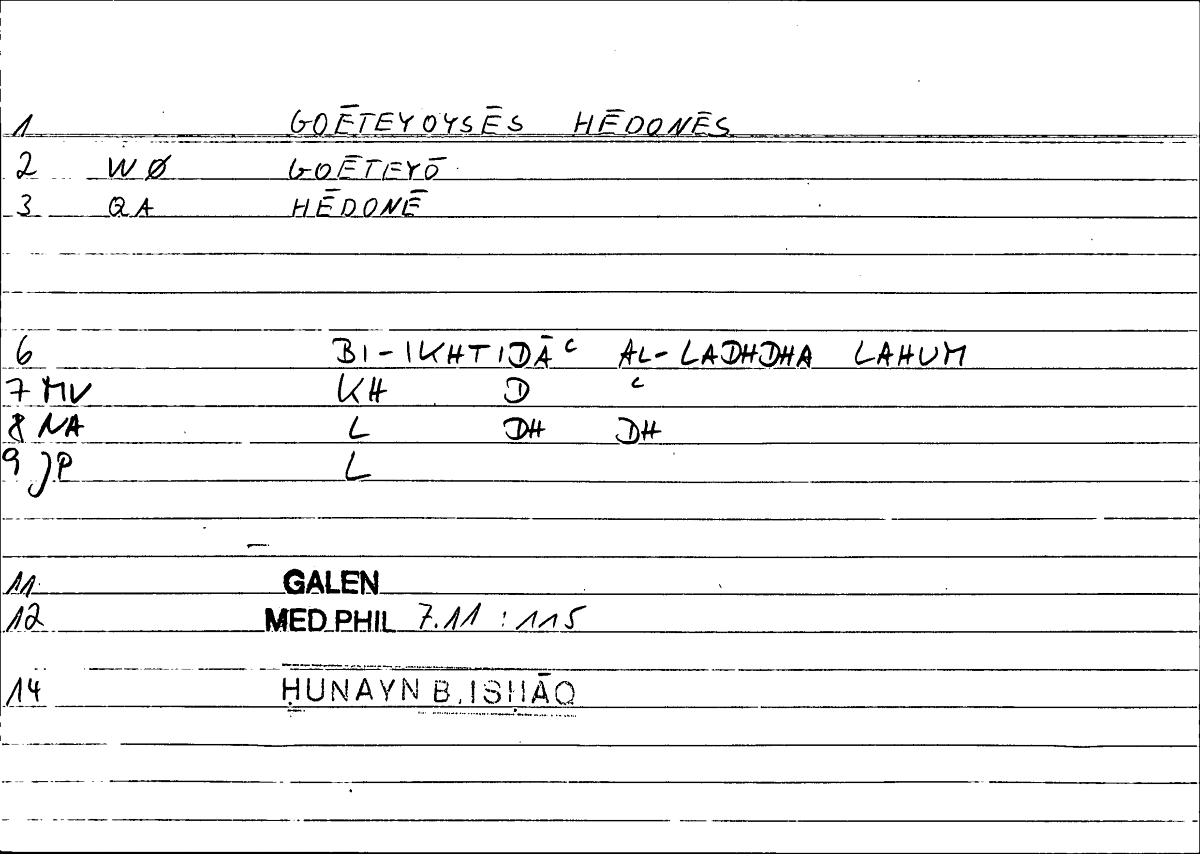 1 GOĒTEYOYSĒS HĒDONĒS
2 WØ GOĒTEYŌ
3 QA HĒDONĒ
6 BI-IKHTIDĀʿ AL-LADHDHA LAHUM
7 MV KH D ʿ
8 NA L DH DH
9 JP L
11 GALEN
12 MED PHIL 7.11 : 115
14 ḤUNAYN B. ISḤĀQ